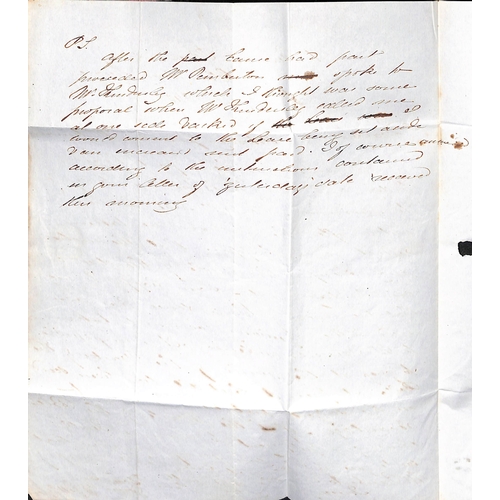 PS.
After the part Cause had part
proceeded Mr Pemberton spoke to
Mr Kindersley which I thought was some
proposal when Mr Kindersley called me
at one side & asked if I
would consent to the Lease being set aside
& an increased rent paid. I of course answered
according to the instructions contained
in your letter of yesterdays date received
this morning